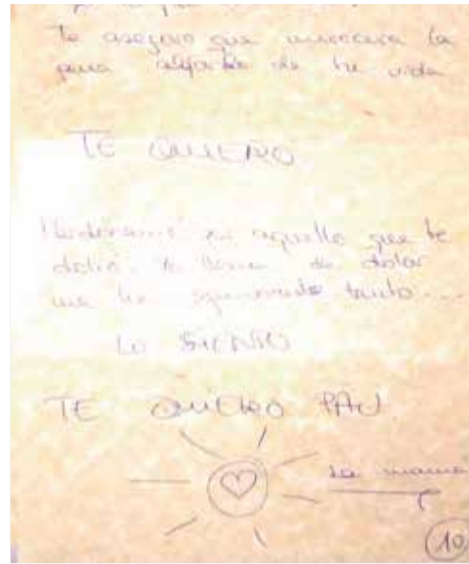 te aseguro que merecera la
pena de tu vida
TE QUIERO
Perdoname en aquello que te
dolio, de dolor
me he tanto....
LO SIENTO
TE QUIERO PAU
La mama
10